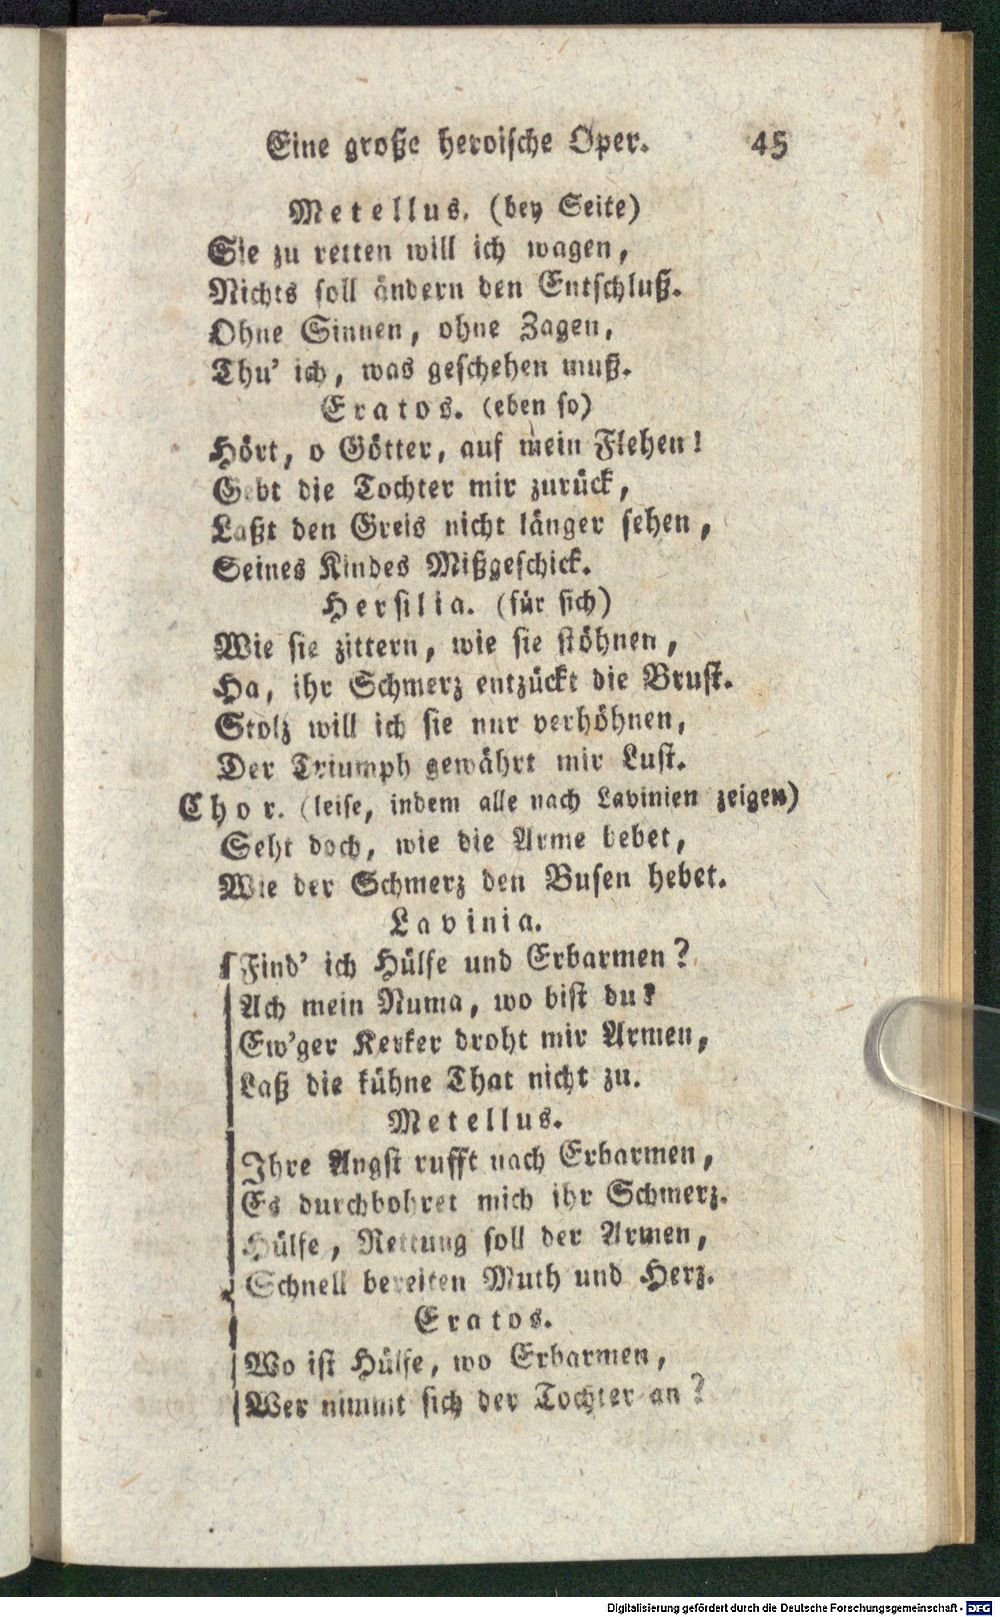 Eine große heroische Oper. 45
Metellus. (bey Seite)
Sie zu retten will ich wagen,
Nichts soll ändern den Entschluß.
Ohne Sinnen, ohne Zagen,
Thu' ich, was geschehen muß.
Eratos. (eben so)
Hört, o Götter, auf mein Flehen!
Gebt die Tochter mir zurück,
Laßt den Greis nicht länger sehen,
Seines Kindes Mißgeschick.
Hersilia. (für sich)
Wie sie zittern, wie sie stöhnen,
Ha, ihr Schmerz entzückt die Brust.
Stolz will ich sie nur verhöhnen,
Der Triumph gewährt mir Lust.
Chor. (leise, indem alle nach Lavinien zeigen)
Seht doch, wie die Arme bebet,
Wie der Schmerz den Busen hebet.
Lavinia.
Find' ich Hülfe und Erbarmen?
Ach mein Numa, wo bist du?
Ew'ger Kerker droht mir Armen,
Laß die kühne That nicht zu.
Metellus.
Ihre Angst rufft nach Erbarmen,
Es durchbohret mich ihr Schmerz.
Hülfe, Rettung soll der Armen,
Schnell bereiten Muth und Herz.
Eratos.
Wo ist Hülfe, wo Erbarmen,
Wer nimmt sich der Tochter an?
Digitalisierung gefördert durch die Deutsche Forschungsgemeinschaft - DFG